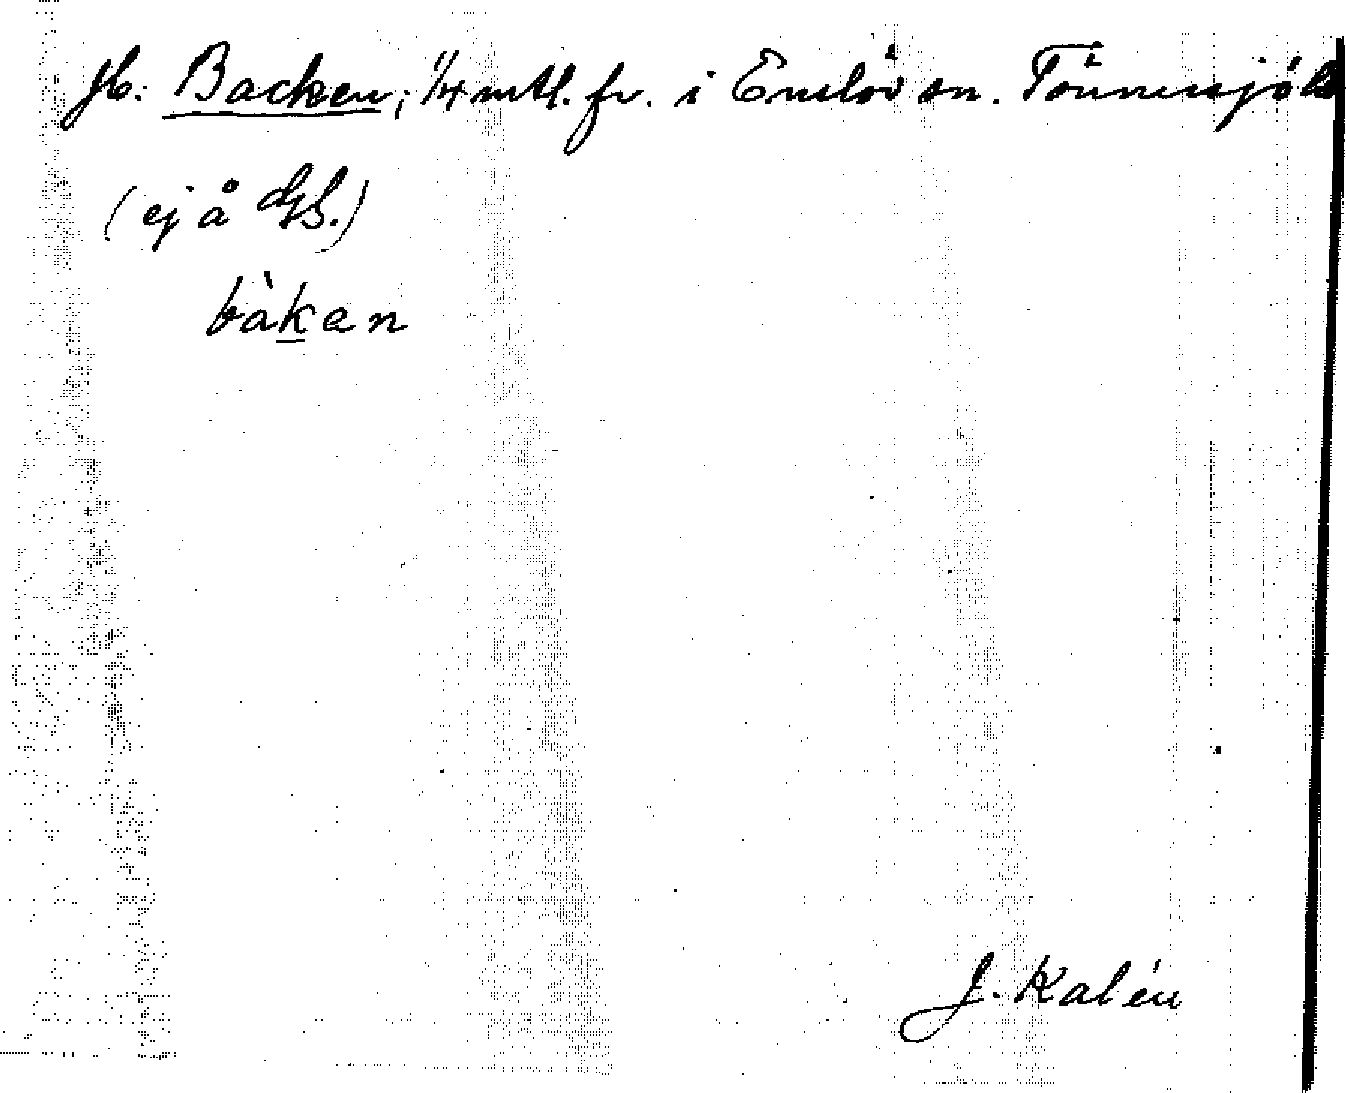 Jb: Backen, 1/4 mtl. fr. i Enslöv sn. Tönnersjö hd
(ej å GS.)
bàken
J. Kalén